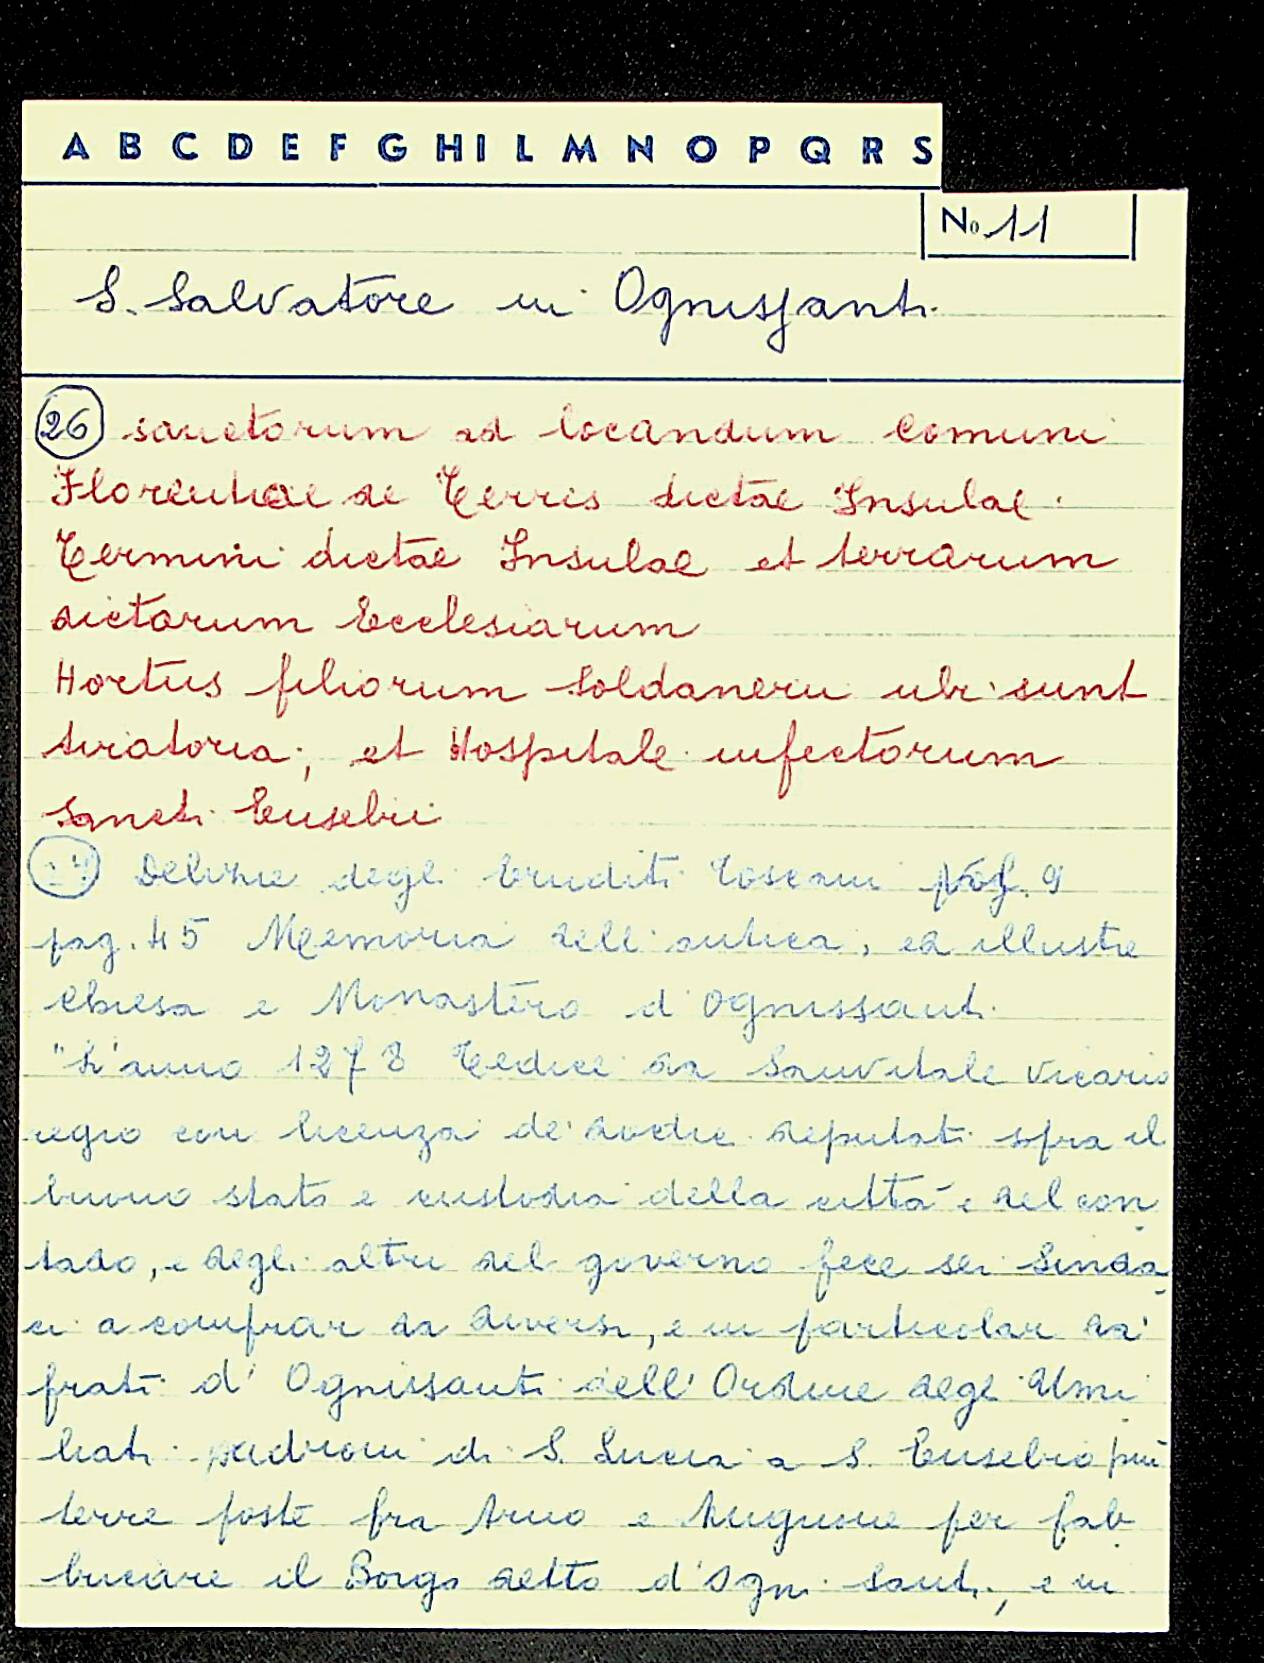 A B C D E F G H I L M N O P Q R S
No 11
S. Salvatore in Ognissanti
26 sanctorum ad locandum Comuni
Florentiae de Terris dictae Insulae.
Termini dictae Insulae et terrarum
dictarum Ecclesiarum
Hortus filiorum Soldanerii ubi sunt
tiratoria; et Hospitale infectorum
Sancti Eusebii
Delizie degli Eruditi Toscani 9
pag. 45 Memoria dell'antica, ed illustre
Chiesa e Monastero d'Ognissanti
"L'anno 1278 Tedice da Sanvitale vicario
regio con licenza de' dodici deputati sopra il
buono stato e custodia della città e del con
tado, e degli altri del governo fece sei Sinda
ci a comprar da diversi, e in particolar da'
frati d'Ognissanti dell'Ordine degli Umi
liati padroni di S. Lucia a S. Eusebio più
terre poste fra Arno e Mugnone per fab
bricare il Borgo detto d'Ogni Santi, e in